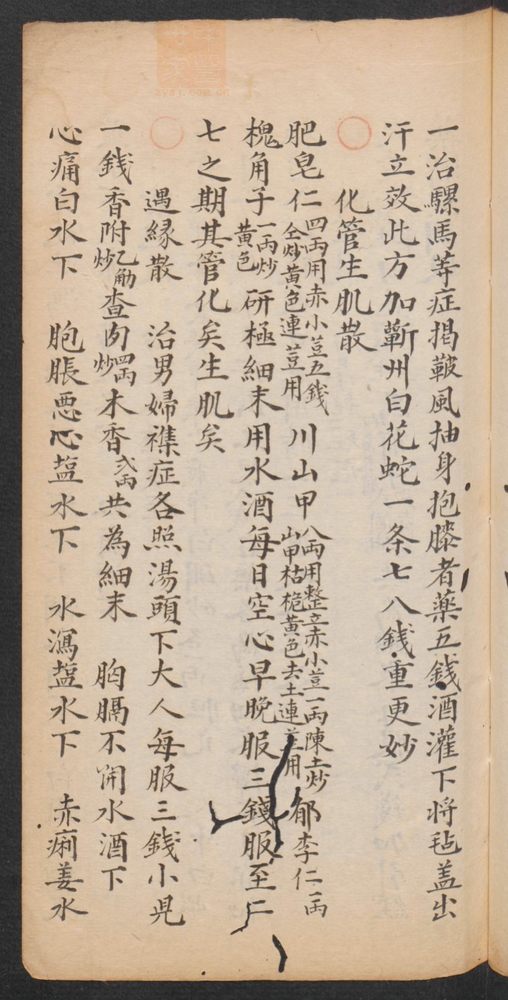 一治騾馬等症揭鞍風抽身抱膝者藥五錢酒灌下將毡盖出
汗立效此方加蘄州白花蛇一条七八錢重更妙
化管生肌散
肥皂仁四両用赤小荳五錢仝炒黄色連荳用 川山甲八両用整立赤小荳一両陳土炒山甲枯桅黄色去土連荳用 郁李仁一両
槐角子一両炒黄色 研極細末用水酒每日空心早晚服三錢服至二
七之期其管化矣生肌矣
遇緣散 治男婦襍症各照湯頭下大人每服三錢小兒
一錢香附乙觔炒查肉四両炒木香弍両共為細末 胸膈不開水酒下
心痛白水下 胞脹悪心塩水下 水瀉塩水下 赤痢姜水